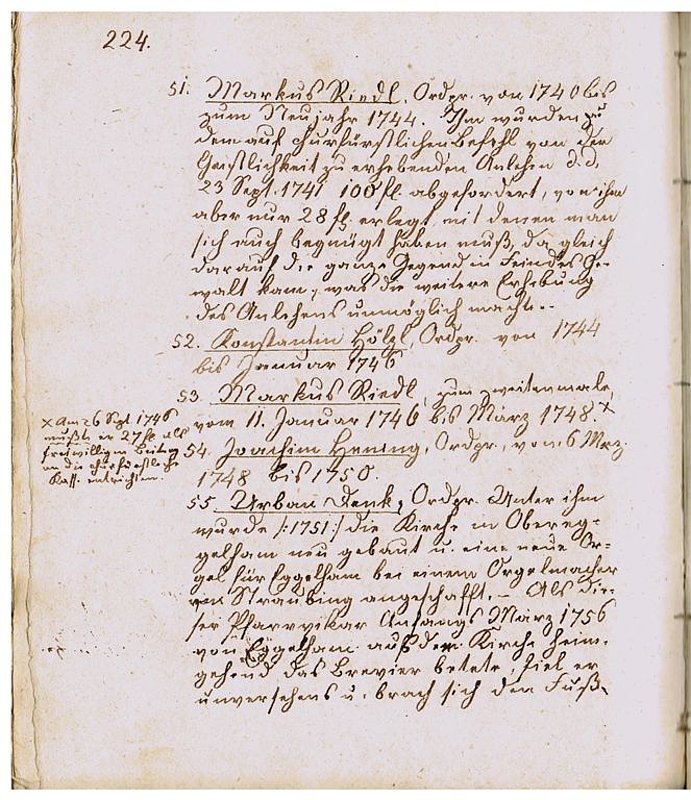 224.
51. Markus Riedl, Ordpr. von 1740 bis
zum Neujahr 1744. Ihm wurden zu
dem auf churfürstlichen Befehl von der
Geistlichkeit zu erhebenden Anlehen d. d.
23 Sept. 1741 100 fl. abgefordert, von ihm
aber nur 28 fl. erlegt, mit denen man
sich auch begnügt haben muß, da gleich
darauf die ganze Gegend in Feindes Ge-
walt kam, was die weitere Erhebung
des Anlehens unmöglich machte.
52. Konstantin Hölzl, Ordpr. von 1744
bis Januar 1746
53. Markus Riedl, zum zweitenmale,
vom 11. Januar 1746 bis März 1748. x
x Am 26 Sept 1746
mußte er 27 fl. als
freiwilligen Beitrag
an die churfürstliche
Kass. entrichten.
54. Joachim Hening, Ordpr., vom 6 Mrz.
1748 bis 1750.
55. Urban Denk, Ordpr. Unter ihm
wurde /:1751:/ die Kirche in Obereg-
gelham neu gebaut u. eine neue Or-
gel für Eggelham bei einem Orgelmacher
von Straubing angeschafft. – Als die-
ser Pfarrvikar Anfangs März 1756
von Eggelham aus der Kirche heim-
gehend das Brevier betete, fiel er
unversehens u. brach sich den Fuß,